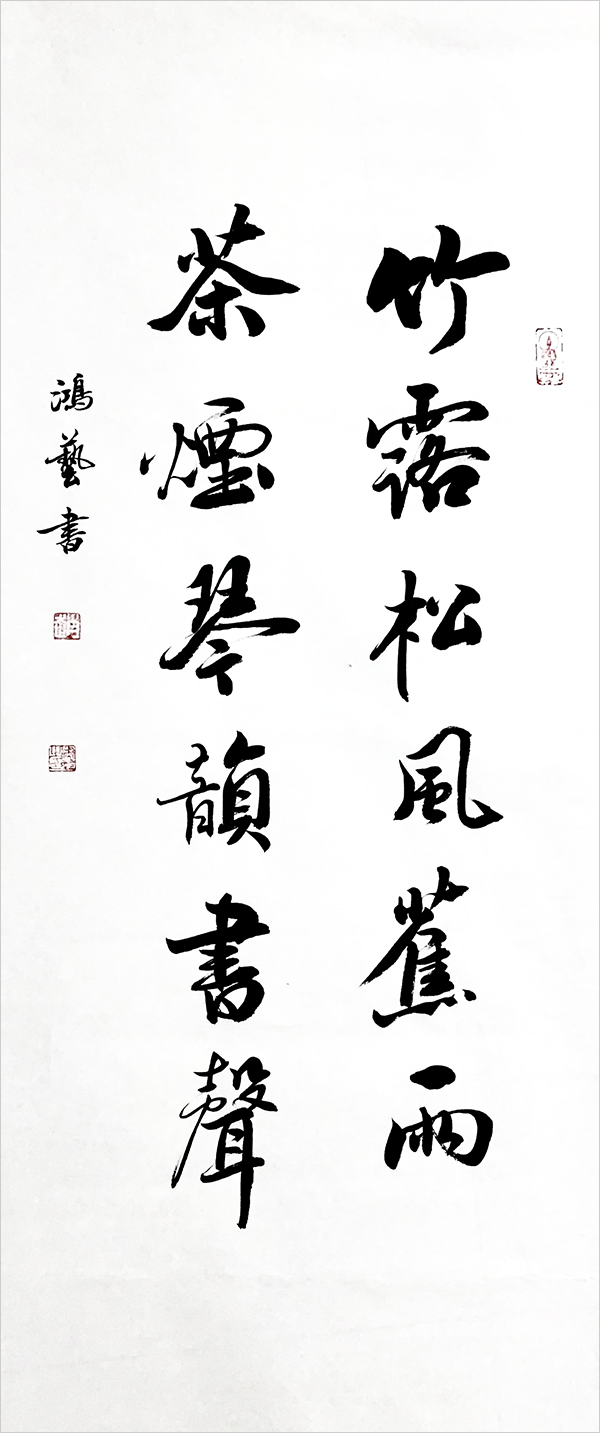 竹露松風蕉雨
茶煙琴韻書聲
鴻藝書